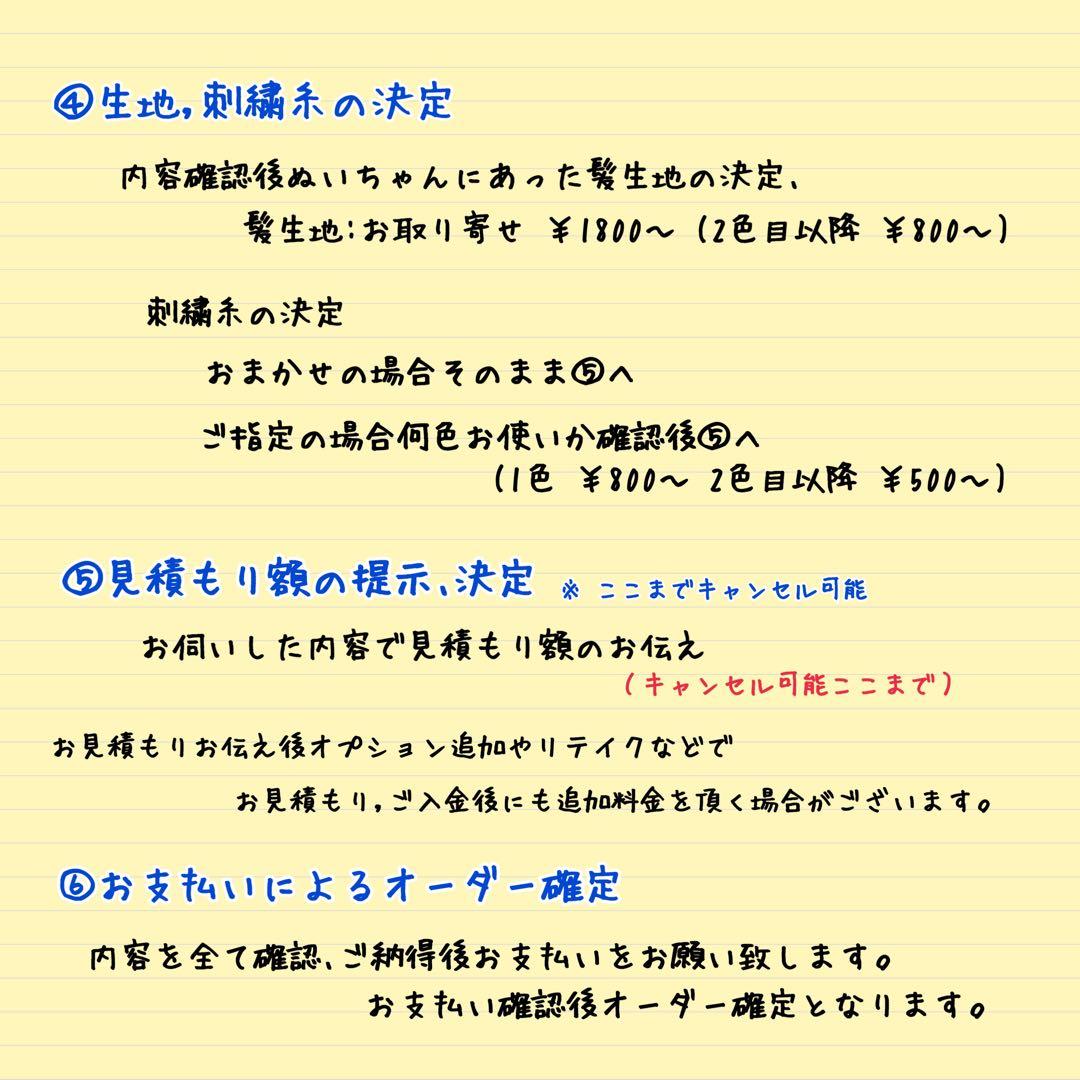 ④生地,刺繍糸の決定
内容確認後ぬいちゃんにあった髪生地の決定、
髪生地:お取り寄せ ¥1800〜 (2色目以降 ¥800〜)
刺繍糸の決定
おまかせの場合そのまま⑤へ
ご指定の場合何色お使いか確認後⑤へ
(1色 ¥800〜 2色目以降 ¥500〜)
⑤見積もり額の提示、決定 ※ ここまでキャンセル可能
お伺いした内容で見積もり額のお伝え
(キャンセル可能ここまで)
お見積もりお伝え後オプション追加やリテイクなどで
お見積もり,ご入金後にも追加料金を頂く場合がございます。
⑥お支払いによるオーダー確定
内容を全て確認、ご納得後お支払いをお願い致します。
お支払い確認後オーダー確定となります。